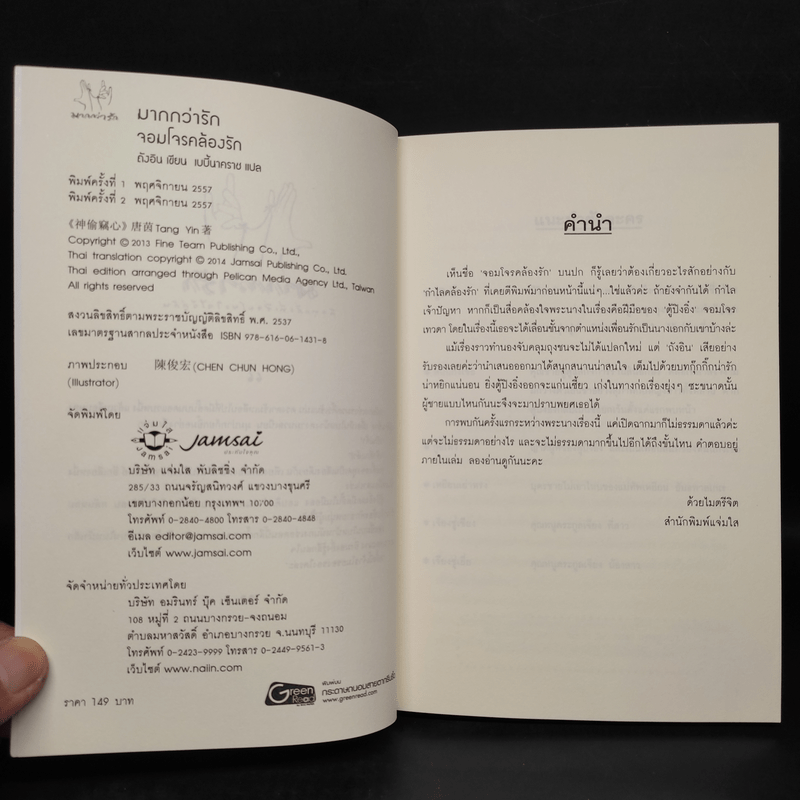 มากกว่ารัก
มากกว่ารัก
จอมโจรคล้องรัก
ถังอิน เขียน เบบี้นาคราช แปล
พิมพ์ครั้งที่ 1 พฤศจิกายน 2557
พิมพ์ครั้งที่ 2 พฤศจิกายน 2557
《神偷竊心》唐茵 Tang Yin 著
Copyright © 2013 Fine Team Publishing Co., Ltd.,
Thai translation copyright © 2014 Jamsai Publishing Co., Ltd.
Thai edition arranged through Pelican Media Agency Ltd., Taiwan
All rights reserved
สงวนลิขสิทธิ์ตามพระราชบัญญัติลิขสิทธิ์ พ.ศ. 2537
เลขมาตรฐานสากลประจำหนังสือ ISBN 978-616-06-1431-8
ภาพประกอบ 陳俊宏 (CHEN CHUN HONG)
(Illustrator)
จัดพิมพ์โดย
แจ่มใส
Jamsai
Jamsai
บริษัท แจ่มใส พับลิชชิ่ง จำกัด
285/33 ถนนจรัญสนิทวงศ์ แขวงบางขุนศรี
เขตบางกอกน้อย กรุงเทพฯ 10700
โทรศัพท์ 0-2840-4800 โทรสาร 0-2840-4848
อีเมล editor@jamsai.com
เว็บไซต์ www.jamsai.com
จัดจำหน่ายทั่วประเทศโดย
บริษัท อมรินทร์ บุ๊ค เซ็นเตอร์ จำกัด
108 หมู่ที่ 2 ถนนบางกรวย-จงถนอม
ตำบลมหาสวัสดิ์ อำเภอบางกรวย จ.นนทบุรี 11130
โทรศัพท์ 0-2423-9999 โทรสาร 0-2449-9561-3
เว็บไซต์ www.naiin.com
ราคา 149 บาท
Green Read
พิมพ์บน
กระดาษถนอมสายตากรีนรี้ด
www.greenread.com
คำนำ
เห็นชื่อ 'จอมโจรคล้องรัก' บนปก ก็รู้เลยว่าต้องเกี่ยวอะไรสักอย่างกับ
'กำไลคล้องรัก' ที่เคยตีพิมพ์มาก่อนหน้านี้แน่ๆ...ใช่แล้วค่ะ ถ้ายังจำกันได้ กำไล
เจ้าปัญหา หากก็เป็นสื่อคล้องใจพระนางในเรื่องคือฝีมือของ 'ตู้ปิงอิ๋ง' จอมโจร
เทวดา โดยในเรื่องนี้เธอจะได้เลื่อนชั้นจากตำแหน่งเพื่อนรักเป็นนางเอกกับเขาบ้างล่ะ
แม้เรื่องราวทำนองจับคลุมถุงชนจะไม่ได้แปลกใหม่ แต่ 'ถังอิน' เสียอย่าง
รับรองเลยค่ะว่านำเสนอออกมาได้สนุกสนานน่าสนใจ เต็มไปด้วยบทกุ๊กกิ๊กน่ารัก
น่าหยิกแน่นอน ยิ่งตู้ปิงอิ๋งออกจะแก่นเซี้ยว เก่งในทางก่อเรื่องยุ่งๆ ซะขนาดนั้น
ผู้ชายแบบไหนกันนะจึงจะมาปราบพยศเธอได้
การพบกันครั้งแรกระหว่างพระนางเรื่องนี้ แค่เปิดฉากมาก็ไม่ธรรมดาแล้วค่ะ
แต่จะไม่ธรรมดาอย่างไร และจะไม่ธรรมดามากขึ้นไปอีกได้ถึงขั้นไหน คำตอบอยู่
ภายในเล่ม ลองอ่านดูกันนะคะ
ด้วยไมตรีจิต
สำนักพิมพ์แจ่มใส